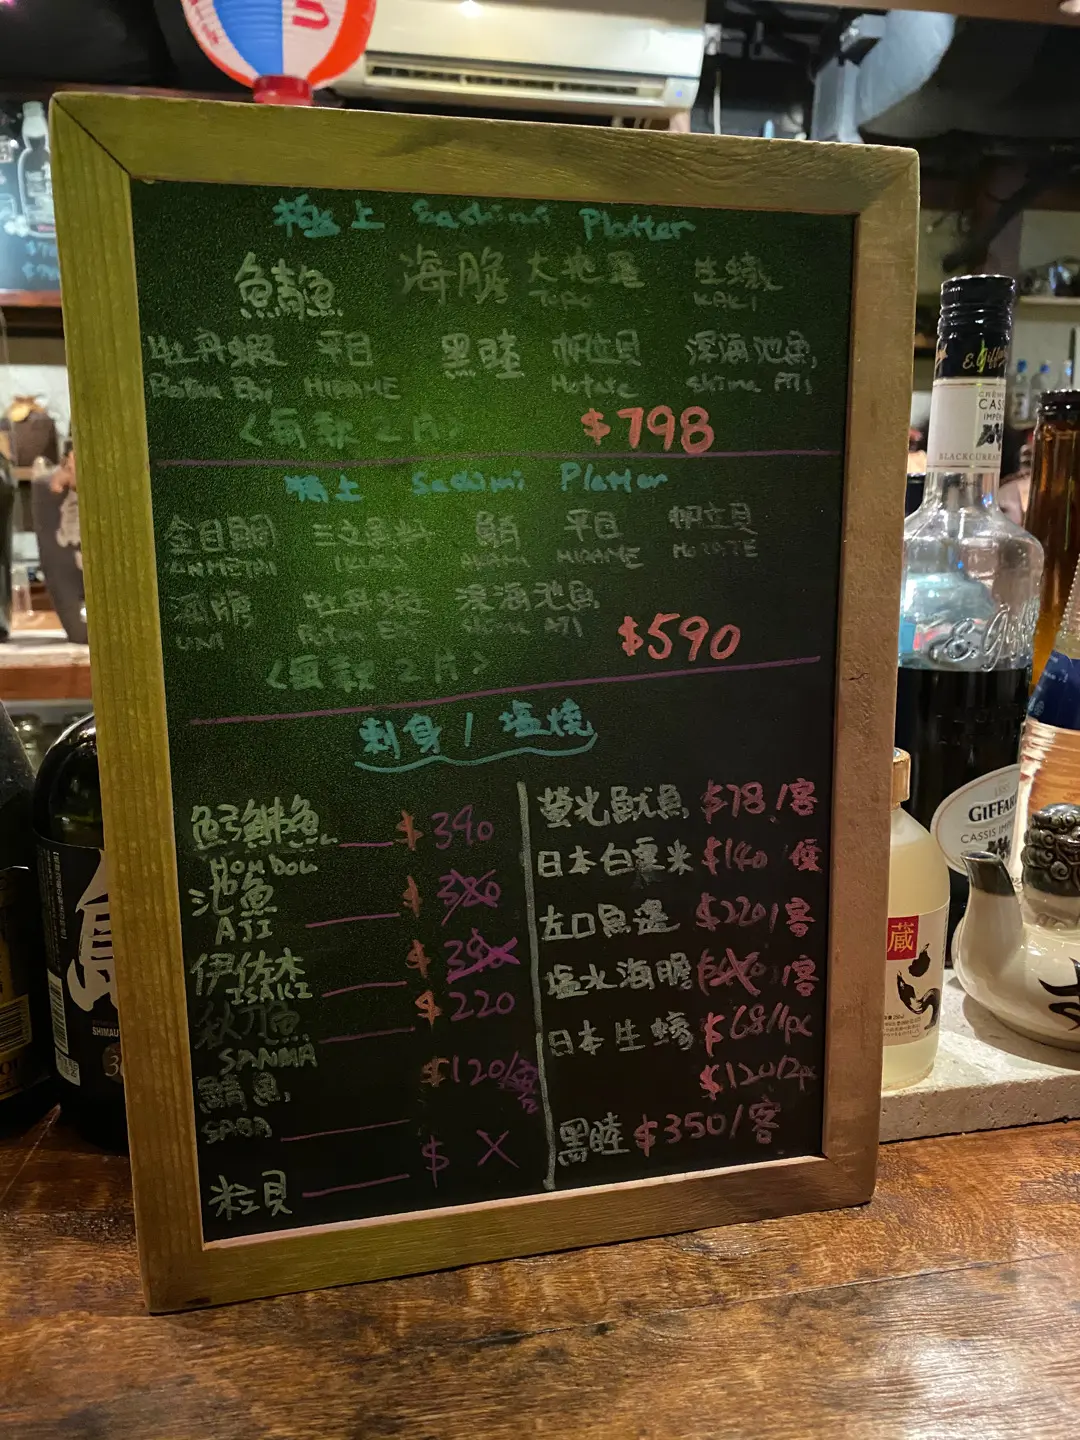 極上 Sashimi Platter
鯖魚 海膽 大拖羅 生蠔
TORO KAKI
牡丹蝦 平目 黑睦 帆立貝 深海池魚
Botan Ebi HIRAME Hotate Shima Aji
<每款2片> $798
特上 Sashimi Platter
金目鯛 三文魚籽 平目 帆立貝
HIRAME HOTATE
海膽 牡丹蝦 深海池魚
UNI Botan Ebi Shima AJI
<每款2片> $590
刺身 / 塩燒
$390
池魚 $
AJI
伊佐木 $
ISAKI
秋刀魚 $220
SANMA
鯖魚 $120/
SABA
粒貝 $ X
螢光魷魚 $78/客
日本白 $140
左口魚邊 $220/客
塩水海膽 /客
日本生蠔 $68/1pc
$120/2pc
黑睦 $350/客
E. Giffard
CASSIS
BLACKCURRANT
GIFFARD
CASSIS
蔵
島